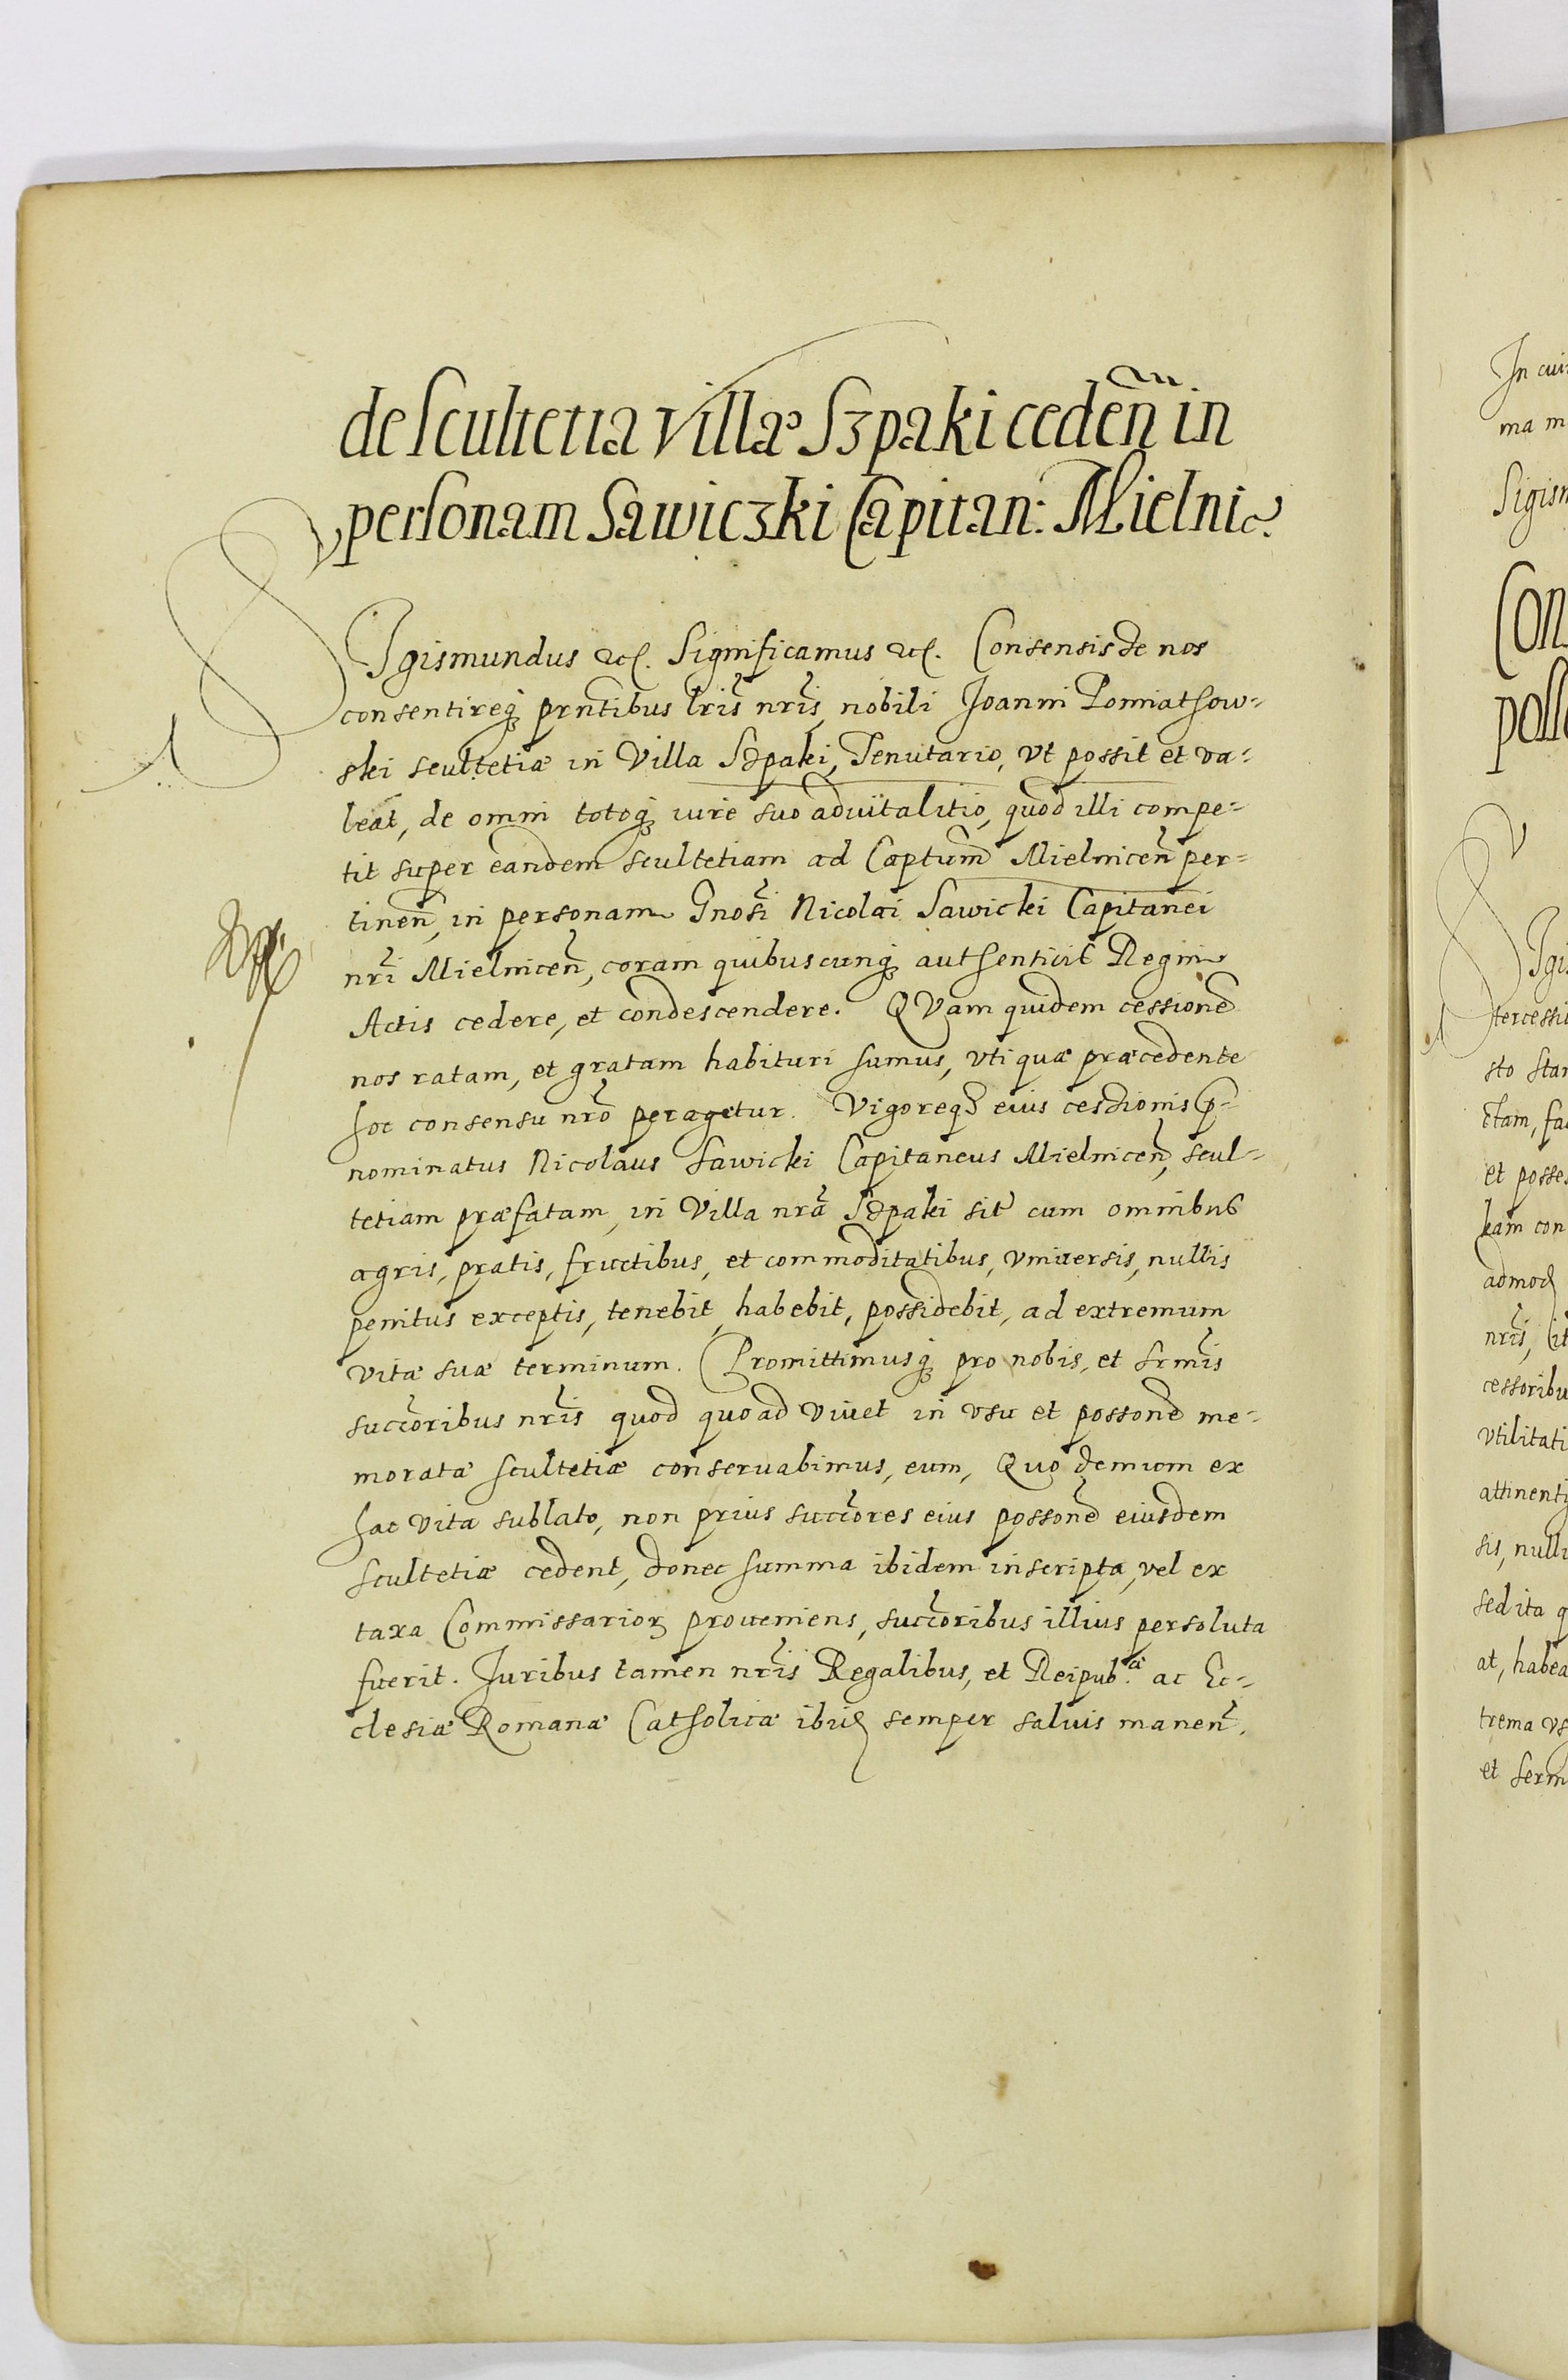 de scultetia villæ Szpaki ceden̄ in
personam Sawiczki Capitan: Mielnic.
SIgismundus etc. Significamus etc. Consensisse nos
consentireq; prntibus lris nris, nobili Joanni Poniathow-
ski scultetiæ in Villa Szpaki, Tenutario, vt possit et va-
leat, de omni totoq; iure suo aduitalitio, quod illi compe-
tit super eandem scultetiam ad Captum Mielnicen̄ per-
tinen̄, in personam Gnosi Nicolai Sawicki Capitanei
nri Mielnicen̄, coram quibuscunq; authenticis Regni
Actis cedere, et condescendere. QVam quidem cessione
nos ratam, et gratam habituri sumus, vti quæ præcedente
hoc consensu nro peragetur. Vigoreq; eius cessionis p-
nominatus Nicolaus Sawicki Capitaneus Mielnicen̄, scul-
tetiam præfatam, in Villa nra Szpaki sit cum omnibus
agris, pratis, fructibus, et commoditatibus, vniuersis, nullis
penitus exceptis, tenebit, habebit, possidebit, ad extremum
vitæ suæ terminum. Promittimusq; pro nobis, et Srmis
succoribus nris quod quoad viuet in vsu et possone me-
moratæ scultetiæ conseruabimus, eum, Quo demum ex
hac vita sublato, non prius succores eius possone eiusdem
scultetiæ cedent, donec summa ibidem inscripta, vel ex
taxa Commissarioꝝ proueniens, succoribus illius persoluta
fuerit. Juribus tamen nris Regalibus, et Reipub.æ ac Ec-
clesiæ Romanæ Catholicæ ibid semper saluis manen̄.
In cui
ma m
Sigism
Con
poss
SIgis
tercessi
sto Sta
et posse
admod
nris,
cessoribu
vtilitati
attinenti
sis, nulli
sed ita q
at, habea
trema vs
et Serm